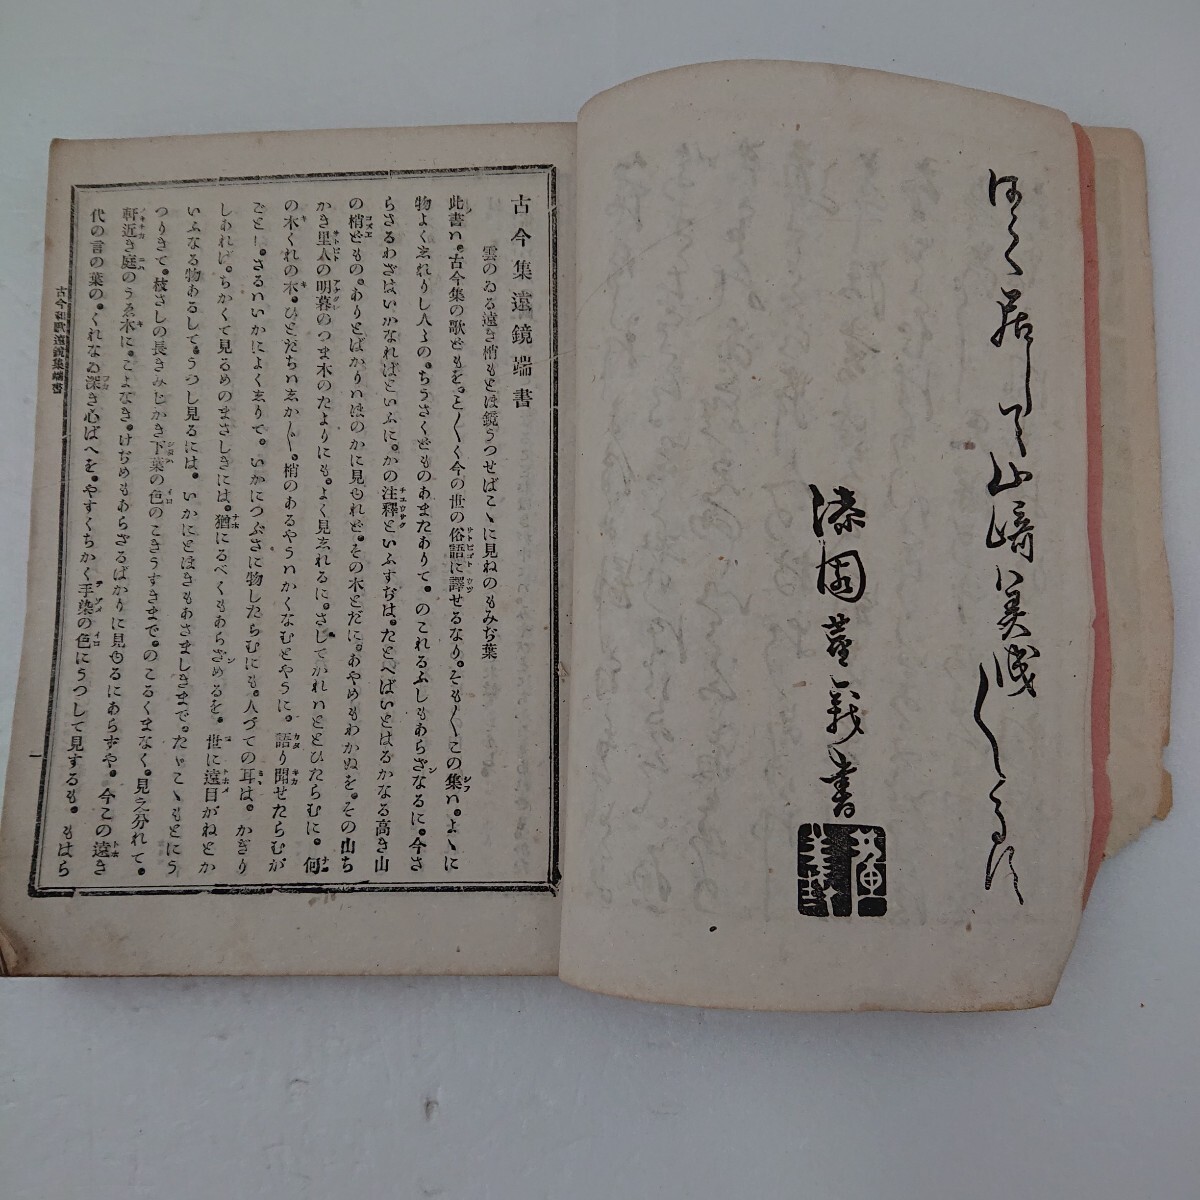 山﨑美成しるす
漆園
義書
古今集遠鏡端書
雲のゐる遠き梢もとほ鏡うつせばこゝに見ねのもみぢ葉
此書ハ。古今集の歌どもを。こと〴〵く今の世の俗語に譯せるなり。そも〳〵この集ハ。よゝに
物よくゑれりし人々の。ちうさくどものあまたありて。のこれるふしもあらざなるに。今さ
らさるわざはいかなればといふに。かの注釋といふすぢは。たとへばいとはるかなる高き山
の梢どもの。ありとばかりハほのかに見ゆれど。その木とだに。あやめもわかぬを。その山ち
かき里人の明暮のつま木のたよりにも。よく見ゑれるに。さしてかれハととひたらむに。何
の木くれの木。もとだちハゑか〴〵。梢のあるやうハかくなむとやうに。語り聞せたらむが
ごとし。さるハいかによくゑりて。いかにつぶさに物したらむにも。人づての耳は。かぎり
しあれば。ちかくて見るめのまさしきには。猶にるべくもあらざめるを。世に遠目がねとか
いふなる物あるして。うつし見るには。いかにとほきもあさましきまで。たゞこゝもとにう
つりきて。枝さしの長きみじかき下葉の色のこきうすきまで。のこるくまなく。見え分れて。
軒近き庭のうゑ木に。こよなき。けぢめもあらざるばかりに見ゆるにあらずや。今この遠き
代の言の葉の。くれなゐ深き心ばへを。やすくちかく手染の色にうつして見するも。もはら
古今和歌遠鏡集端書
一